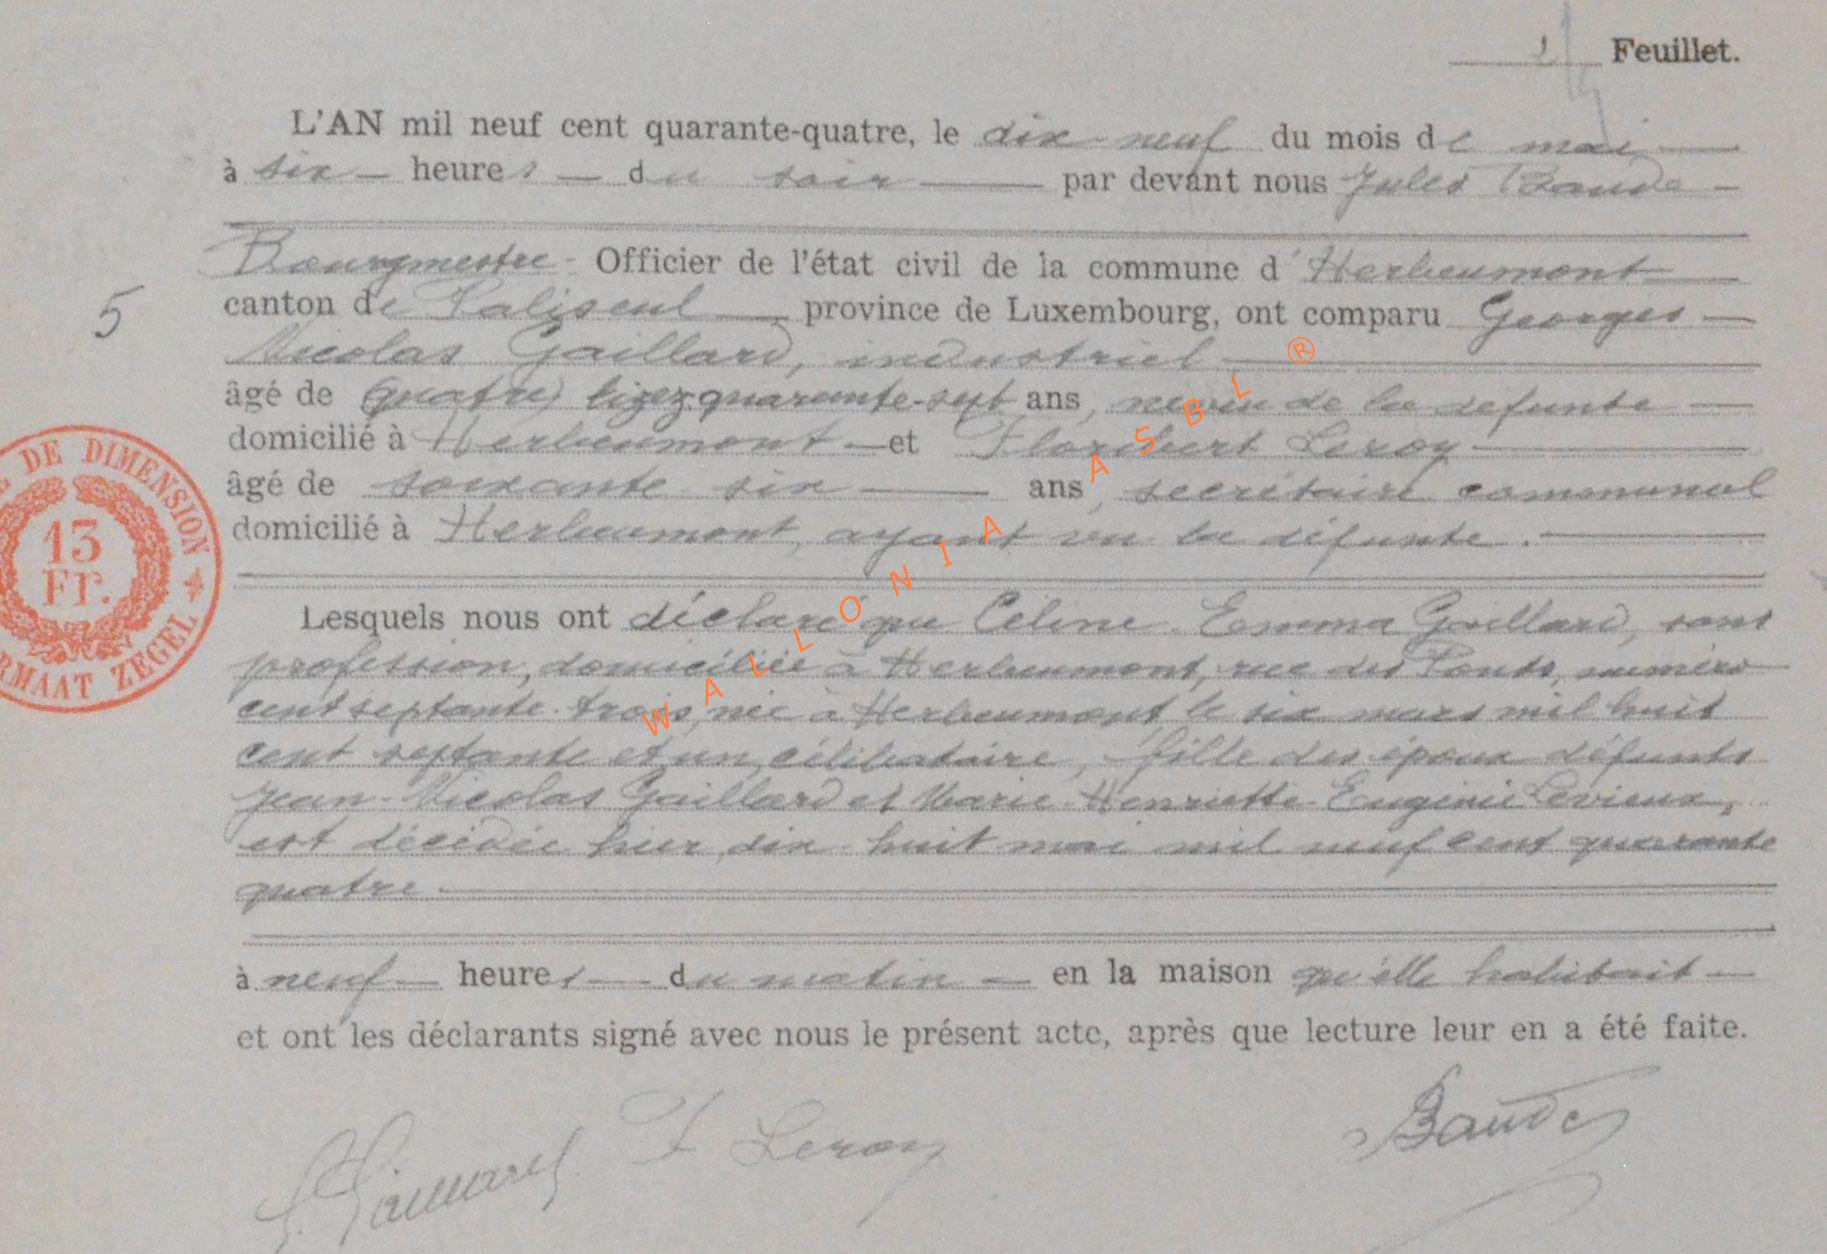 Feuillet.
L'AN mil neuf cent quarante-quatre, le dix-neuf du mois de mai
à six heures du soir par devant nous Jules Baude
Bourgmestre Officier de l'état civil de la commune d'Herbeumont
canton de Paliseul province de Luxembourg, ont comparu Georges
Nicolas Gaillard, industriel
âgé de (quatre) lizez quarante-sept ans, neveu de la défunte
domicilié à Herbeumont et Floribert Leroy
âgé de soixante six ans, secrétaire communal
domicilié à Herbeumont, ayant vu la défunte.
5
DE DIMENSION
13
Fr.
ZEGEL
Lesquels nous ont déclaré que Céline Emma Gaillard, sans
profession, domiciliée à Herbeumont, rue des Ponts, numéro
cent septante-trois, née à Herbeumont, le six mars mil huit
cent septante et un, célibataire, fille des époux défunts
Jean-Nicolas Gaillard et Marie-Henriette-Eugénie Levieux,
est décédée hier, dix-huit mai mil neuf cent quarante
quatre
à neuf heures du matin en la maison qu'elle habitait
et ont les déclarants signé avec nous le présent acte, après que lecture leur en a été faite.
G. Gaillard F Leroy Baude
WALLONIA ASBL ®